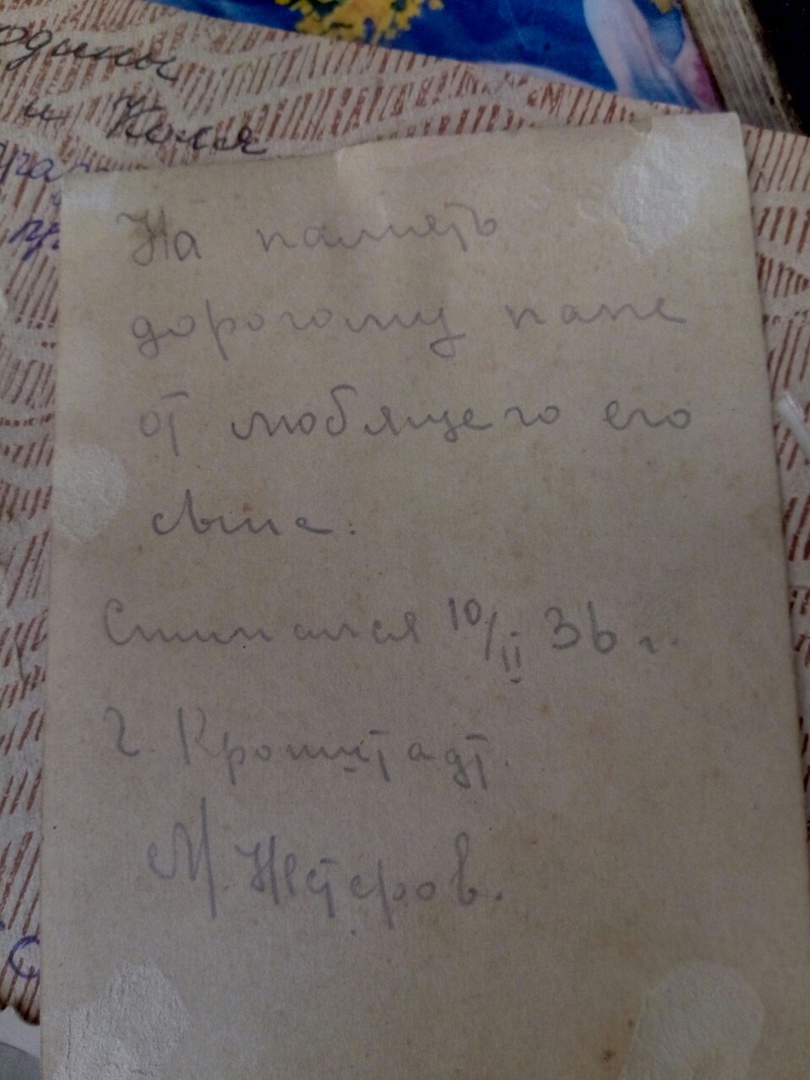 и Коля
На память
дорогому папе
от любящего его
сына.
Снимался 10/II 36 г.
г. Кронштадт.
М. Нестеров.